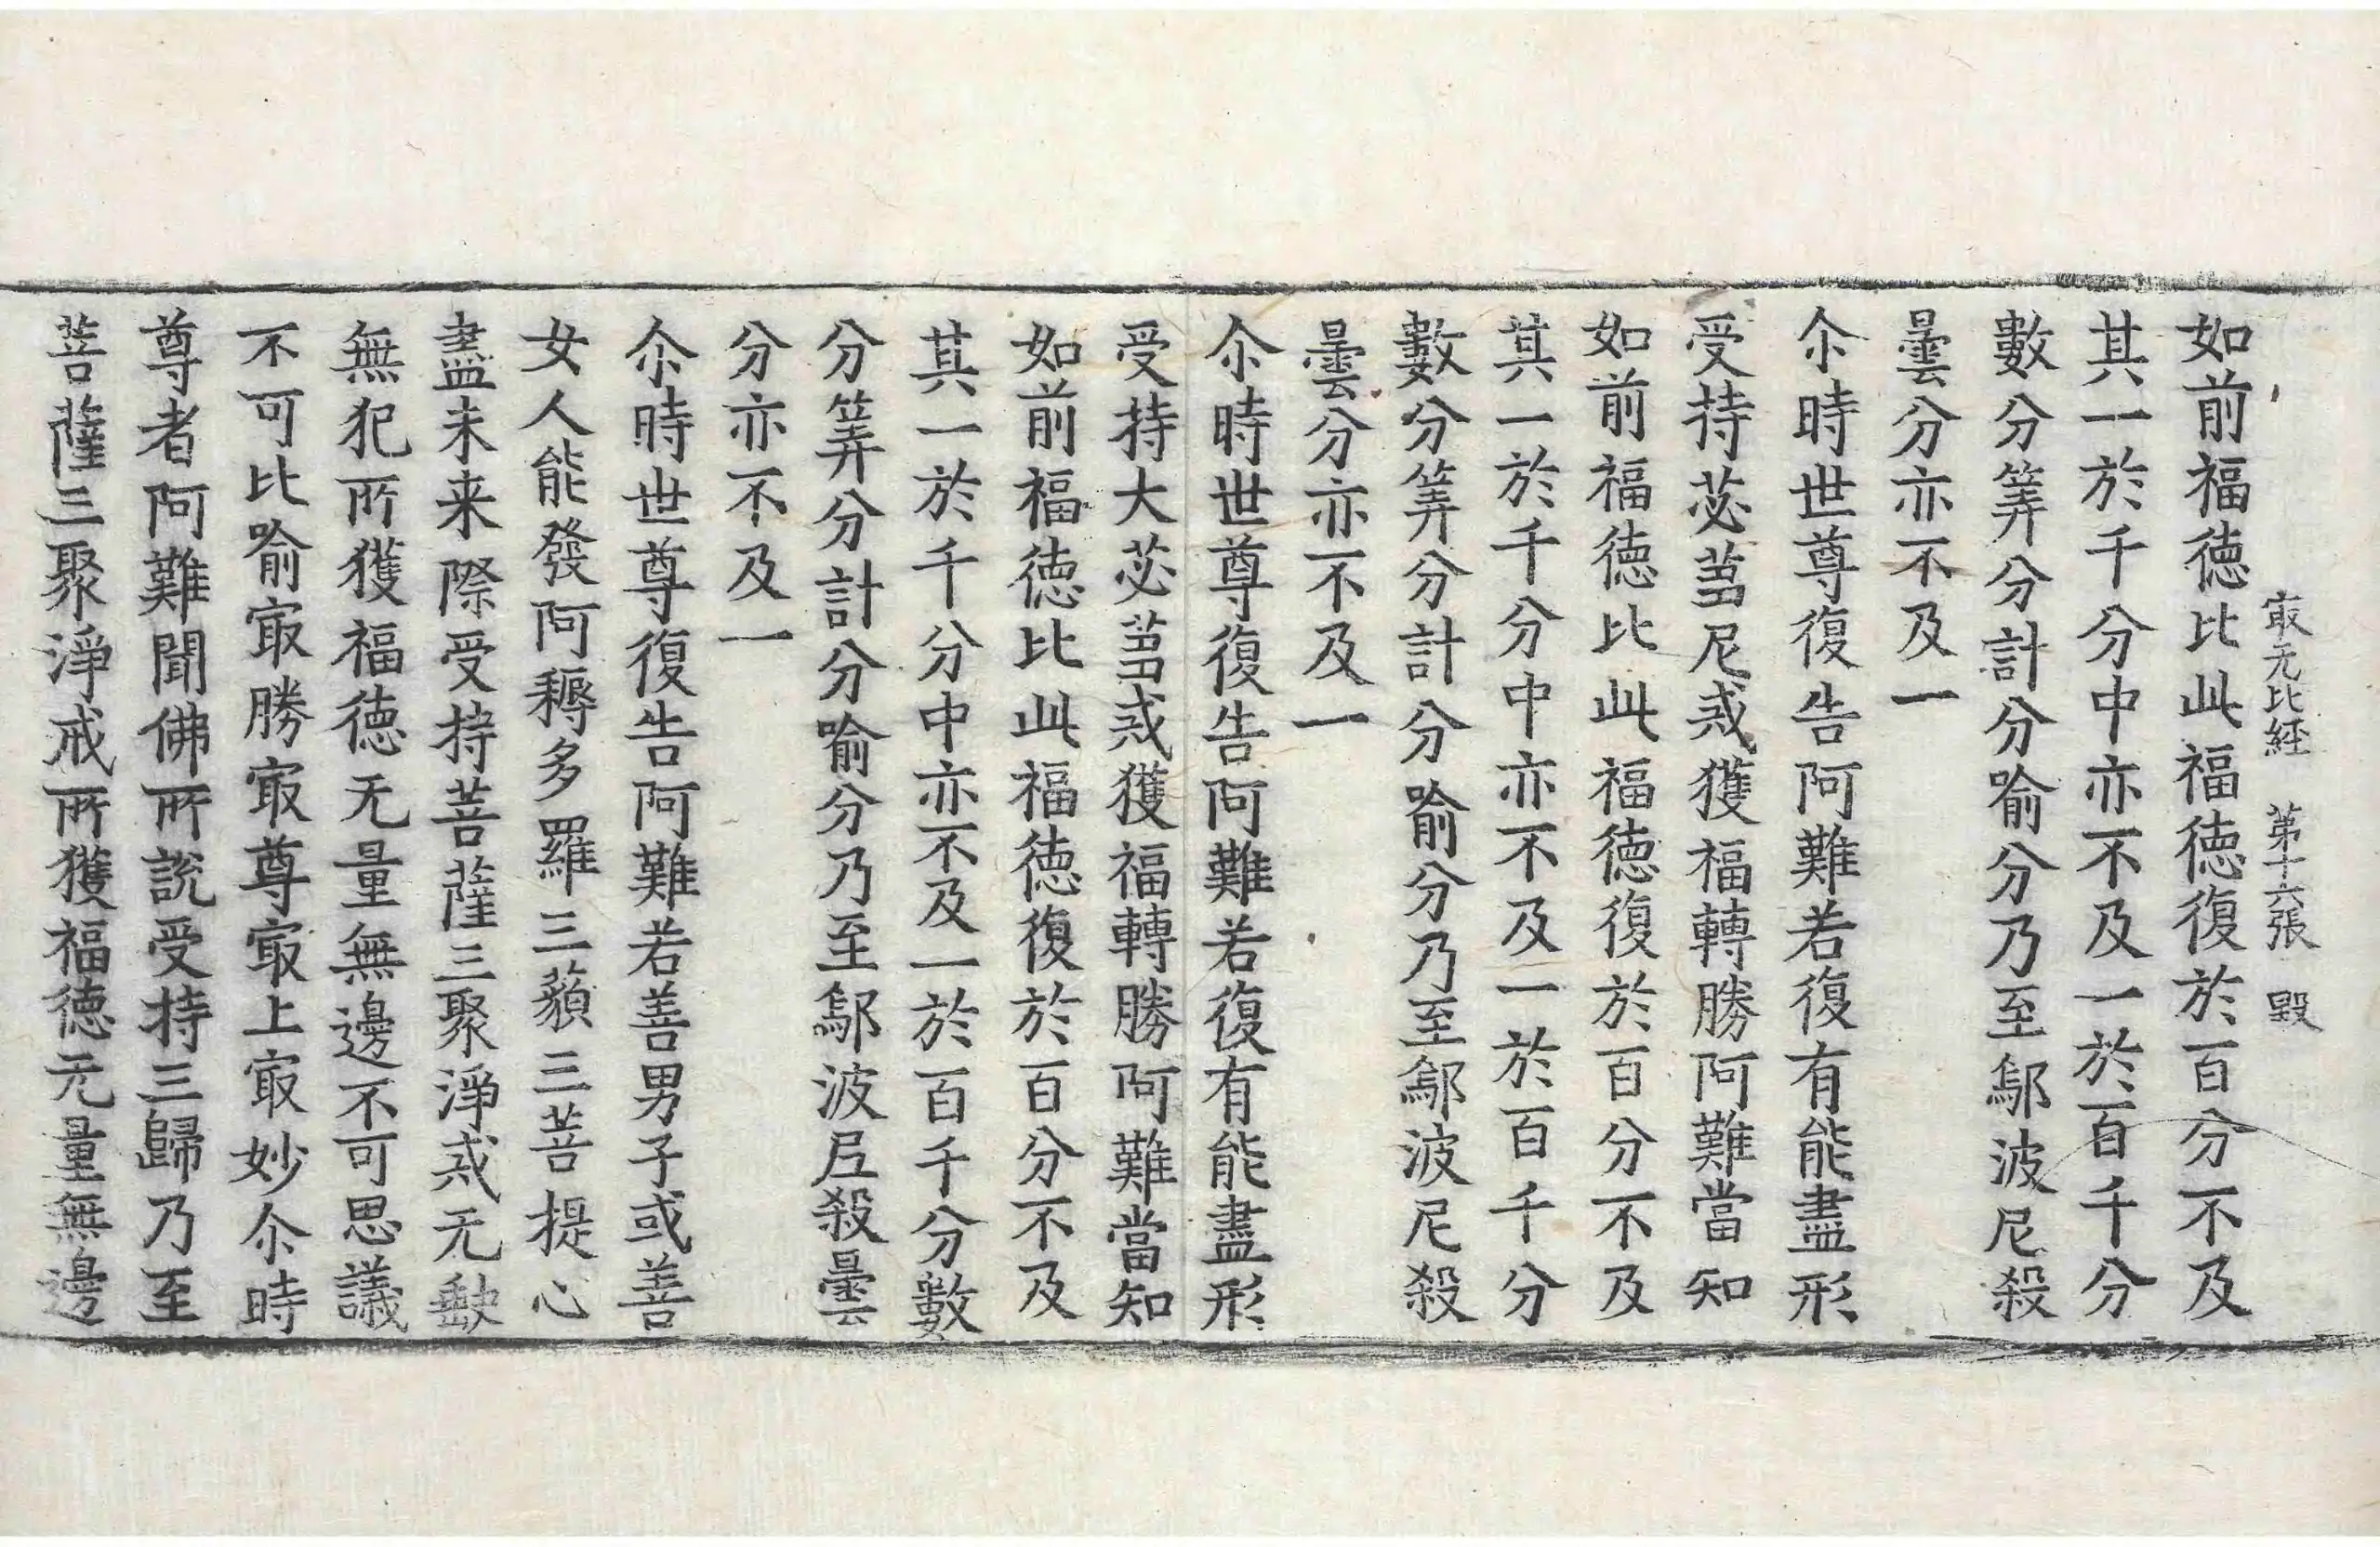 㝡无比経 第十六張 毀
如前福徳比此福徳復於百分不及
其一於千分中亦不及一於百千分
數分筭分計分喻分乃至鄔波尼殺
曇分亦不及一
尒時世尊復告阿難若復有能盡形
受持苾蒭尼戒獲福轉勝阿難當知
如前福徳比此福徳復於百分不及
其一於千分中亦不及一於百千分
數分筭分計分喻分乃至鄔波尼殺
曇分亦不及一
尒時世尊復告阿難若復有能盡形
受持大苾蒭戒獲福轉勝阿難當知
如前福徳比此福徳復於百分不及
其一於千分中亦不及一於百千分數
分筭分計分喻分乃至鄔波尼殺曇
分亦不及一
尒時世尊復告阿難若善男子或善
女人能發阿耨多羅三藐三菩提心
盡未来際受持菩薩三聚淨戒无缺
無犯所獲福徳无量無邊不可思議
不可比喻㝡勝㝡尊㝡上㝡妙尒時
尊者阿難聞佛所說受持三歸乃至
菩薩三聚淨戒所獲福徳无量無邊